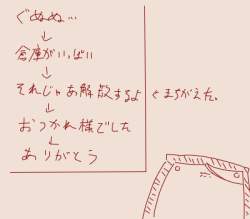 ぐぬぬ…
↓
倉庫がいっぱい
↓
それじゃあ解散するよ ←まちがえた。
↓
おつかれ様でした
↓
ありがとう